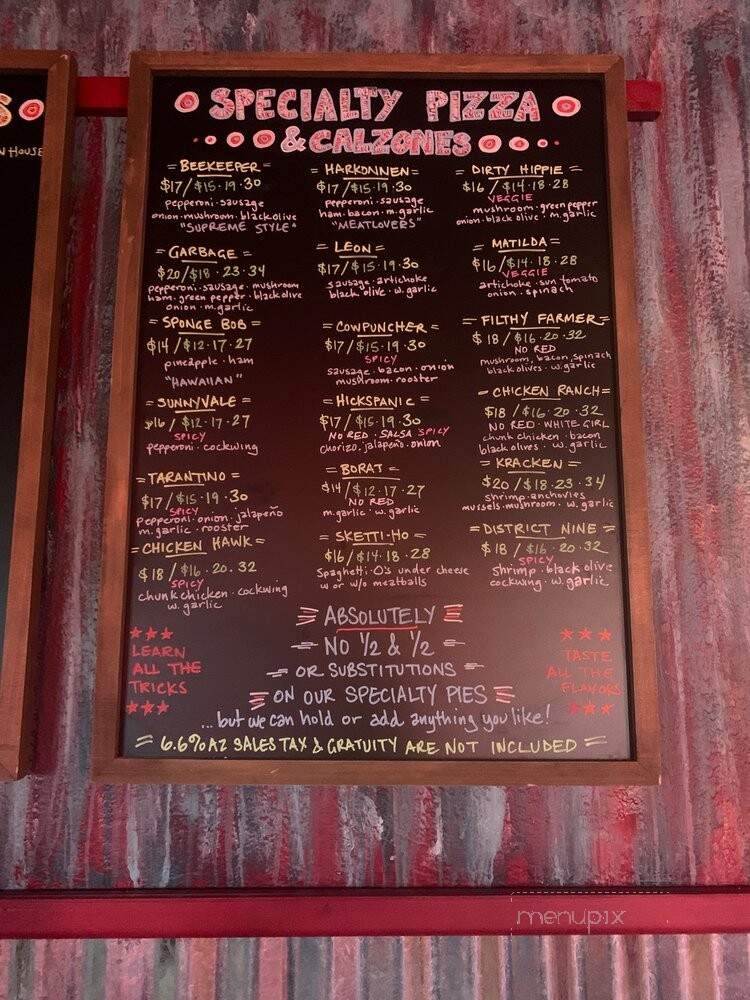 S
N HOUSE
SPECIALTY PIZZA
& CALZONES
BEEKEEPER
$17/$15·19·30
pepperoni·sausage
onion·mushroom·black olive
"SUPREME STYLE"
GARBAGE
$20/$18·23·34
pepperoni·sausage·mushroom
ham·green pepper·black olive
onion·m.garlic
SPONGE BOB
$14/$12·17·27
pineapple·ham
"HAWAIIAN"
SUNNYVALE
$16/$12·17·27
SPICY
pepperoni·cockwing
TARANTINO
$17/$15·19·30
SPICY
pepperoni·onion·jalapeño
m.garlic·rooster
CHICKEN HAWK
$18/$16·20·32
SPICY
chunk chicken·cockwing
w.garlic
HARKONNEN
$17/$15·19·30
pepperoni·sausage
ham·bacon·m.garlic
"MEATLOVERS"
LEON
$17/$15·19·30
sausage·artichoke
black olive·w.garlic
COWPUNCHER
$17/$15·19·30
SPICY
sausage·bacon·onion
mushroom·rooster
HICKSPANIC
$17/$15·19·30
NO RED·SALSA SPICY
chorizo·jalapeño·onion
BORAT
$14/$12·17·27
NO RED
m.garlic·w.garlic
SKETTI-HO
$16/$14·18·28
Spaghetti·O's under cheese
w or w/o meatballs
DIRTY HIPPIE
$16/$14·18·28
VEGGIE
mushroom·green pepper
onion·black olive·m.garlic
MATILDA
$16/$14·18·28
VEGGIE
artichoke·sun tomato
onion·spinach
FILTHY FARMER
$18/$16·20·32
NO RED
mushroom, bacon, spinach
black olives·w.garlic
CHICKEN RANCH
$18/$16·20·32
NO RED·WHITE GIRL
chunk chicken·bacon
black olives·w.garlic
KRACKEN
$20/$18·23·34
shrimp·anchovies
mussels·mushroom·w.garlic
DISTRICT NINE
$18/$16·20·32
SPICY
shrimp·black olive
cockwing·w.garlic
LEARN
ALL THE
TRICKS
ABSOLUTELY
NO ½ & ½
OR SUBSTITUTIONS
ON OUR SPECIALTY PIES
...but we can hold or add anything you like!
TASTE
ALL THE
FLAVORS
6.6% AZ SALES TAX & GRATUITY ARE NOT INCLUDED
menupix